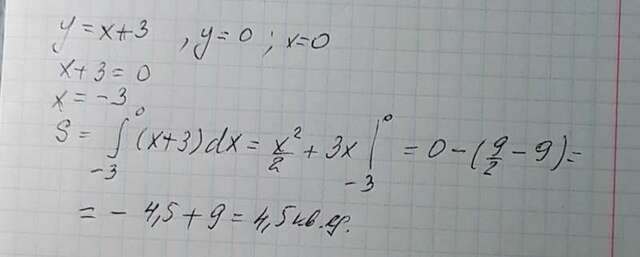 y = x+3 , y = 0 ; x=0
x+3 = 0
x = -3
S = ∫₋₃⁰ (x+3)dx = x²/2 + 3x |₋₃⁰ = 0 - (9/2 - 9) =
= - 4,5 + 9 = 4,5 кв.ед.